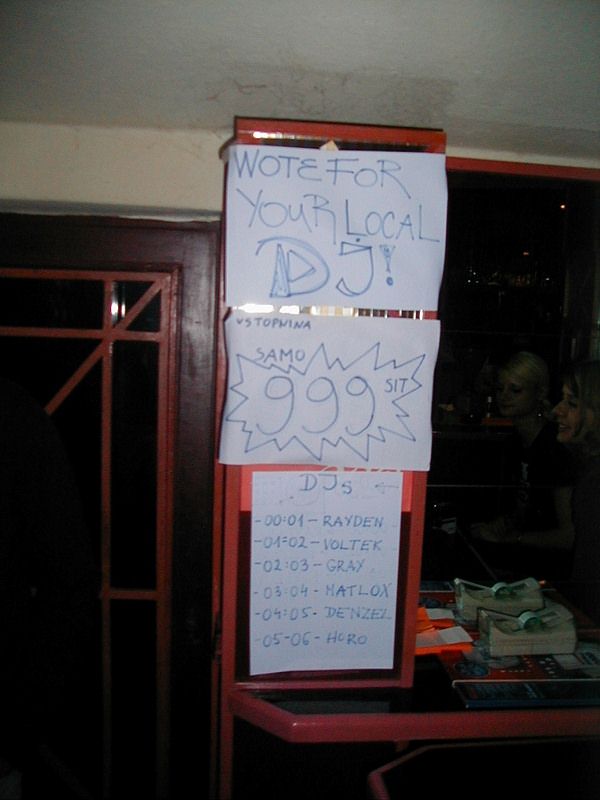 WOTE FOR
YOUR LOCAL
DJ!
VSTOPNINA
SAMO
999 SIT
DJs
-00:01- RAYDEN
-01:02- VOLTEK
-02:03- GRAY
-03:04- MATLOX
-04:05- DENZEL
-05-06- HORO